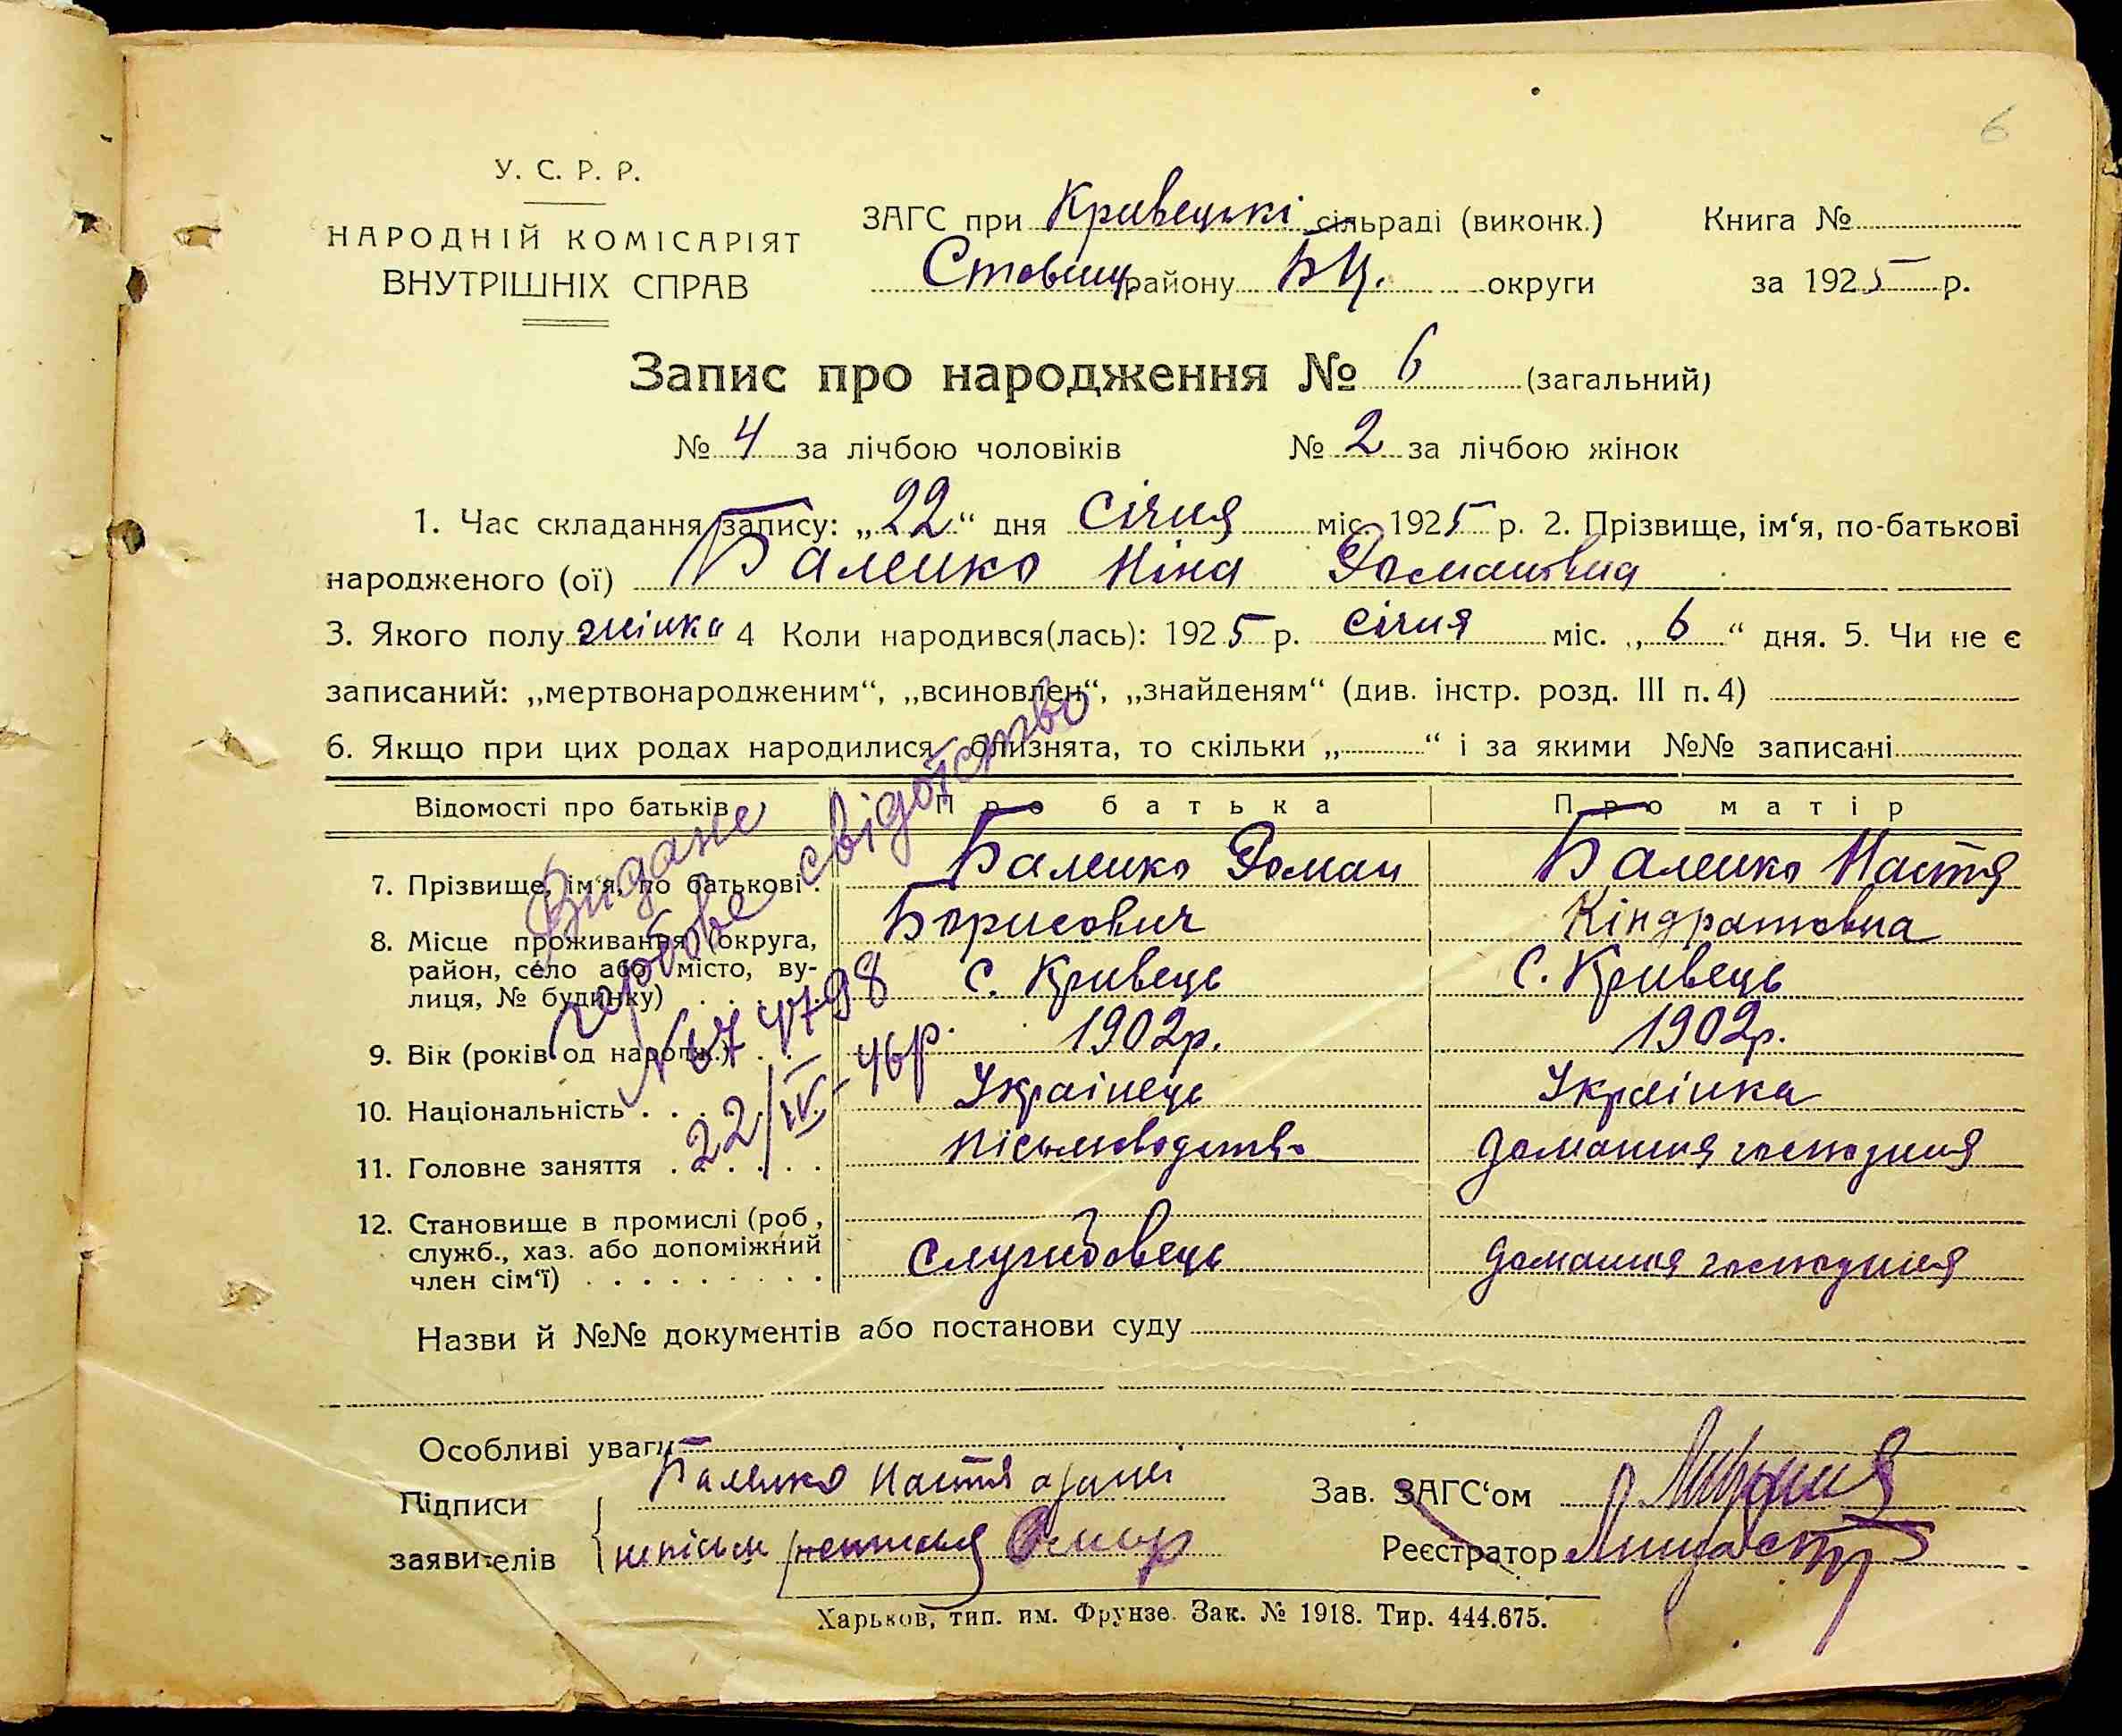 6
У. С. Р. Р.
НАРОДНІЙ КОМІСАРІЯТ
ВНУТРІШНІХ СПРАВ
ЗАГС при Кривецькі сільраді (виконк.)
Ставищ району БЦ. округи
Книга №
за 1925 р.
Запис про народження № 6 (загальний)
№ 4 за лічбою чоловіків № 2 за лічбою жінок
1. Час складання запису: „22“ дня Січня міс. 1925 р. 2. Прізвище, ім‘я, по-батькові
народженого (ої) Баленко Ніна Романівна
3. Якого полу жінка 4 Коли народився(лась): 1925 р. Січня міс. „6“ дня. 5. Чи не є
записаний: „мертвонародженим“, „всиновлен“, „знайденям“ (див. інстр. розд. III п. 4)
6. Якщо при цих родах народилися близнята, то скільки „ “ і за якими №№ записані
Відомості про батьків Про батька Про матір
7. Прізвище, ім‘я, по батькові Баленко Роман Баленко Настя
Борисович Кіндратовна
8. Місце проживання (округа,
район, село або місто, ву-
лиця, № будинку) с. Кривець С. Кривець
9. Вік (років од народж.) 1902р. 1902р.
10. Національність Українець Українка
11. Головне заняття письмоводство домашня господиня
12. Становище в промислі (роб,
служб., хаз. або допоміжний
член сім‘ї) Службовець домашня господиня
Видане
гербове свідотство
22/IV-46р.
Назви й №№ документів або постанови суду
Особливі уваги
Підписи
заявителів
Баленко Настя
Зав. ЗАГС‘ом
Реєстратор
Харьков, тип. им. Фрунзе. Зак. № 1918. Тир. 444.675.